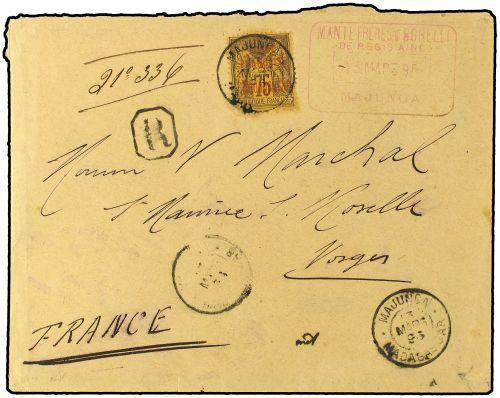 MANTE FRERES & BORELLI
DE REGIS AINE
13 MARS 95
MAJUNGA
MAJUNGA
75
21º 336
R
Monsieur N Marchal
St Maurice s. Moselle
Vosges
FRANCE
MAJUNGA
13
MARS
95
MADAGASCAR